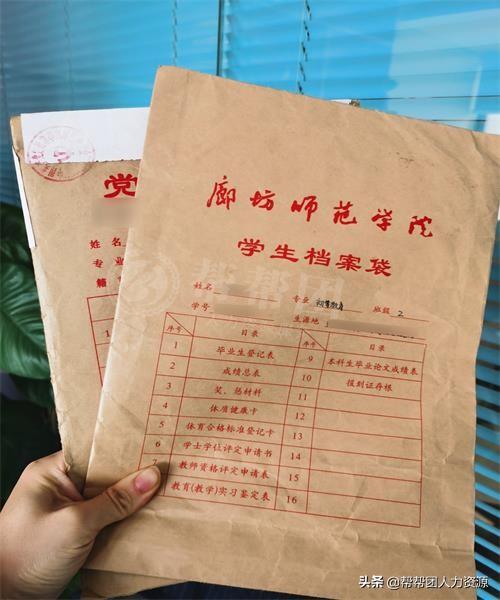 党
姓名
专业
籍
1
廊坊师范学院
学生档案袋
姓名 专业 初等教育 班级 2
学号 生源地
序号 目录 序号 目录
1 毕业生登记表 9 本科生毕业论文成绩表
2 成绩总表 10 报到证存根
3 奖、惩材料 11
4 体质健康卡 12
5 体育合格标准登记卡 13
6 学士学位评定申请书 14
7 教师资格评定申请表 15
教育(教学)实习鉴定表 16
帮帮团
头条 @帮帮团人力资源